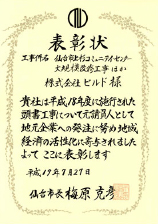 表彰状
工事件名 仙台市本町コミュニティセンター
大規模改修工事 ほか
株式会社 ビルド 様
貴社は平成18年度に施行された
頭書工事について元請負人として
地元企業への発注に努め地域
経済の活性化に寄与されました
よって ここに表彰します
平成19年7月27日
仙台市長 梅原克彦